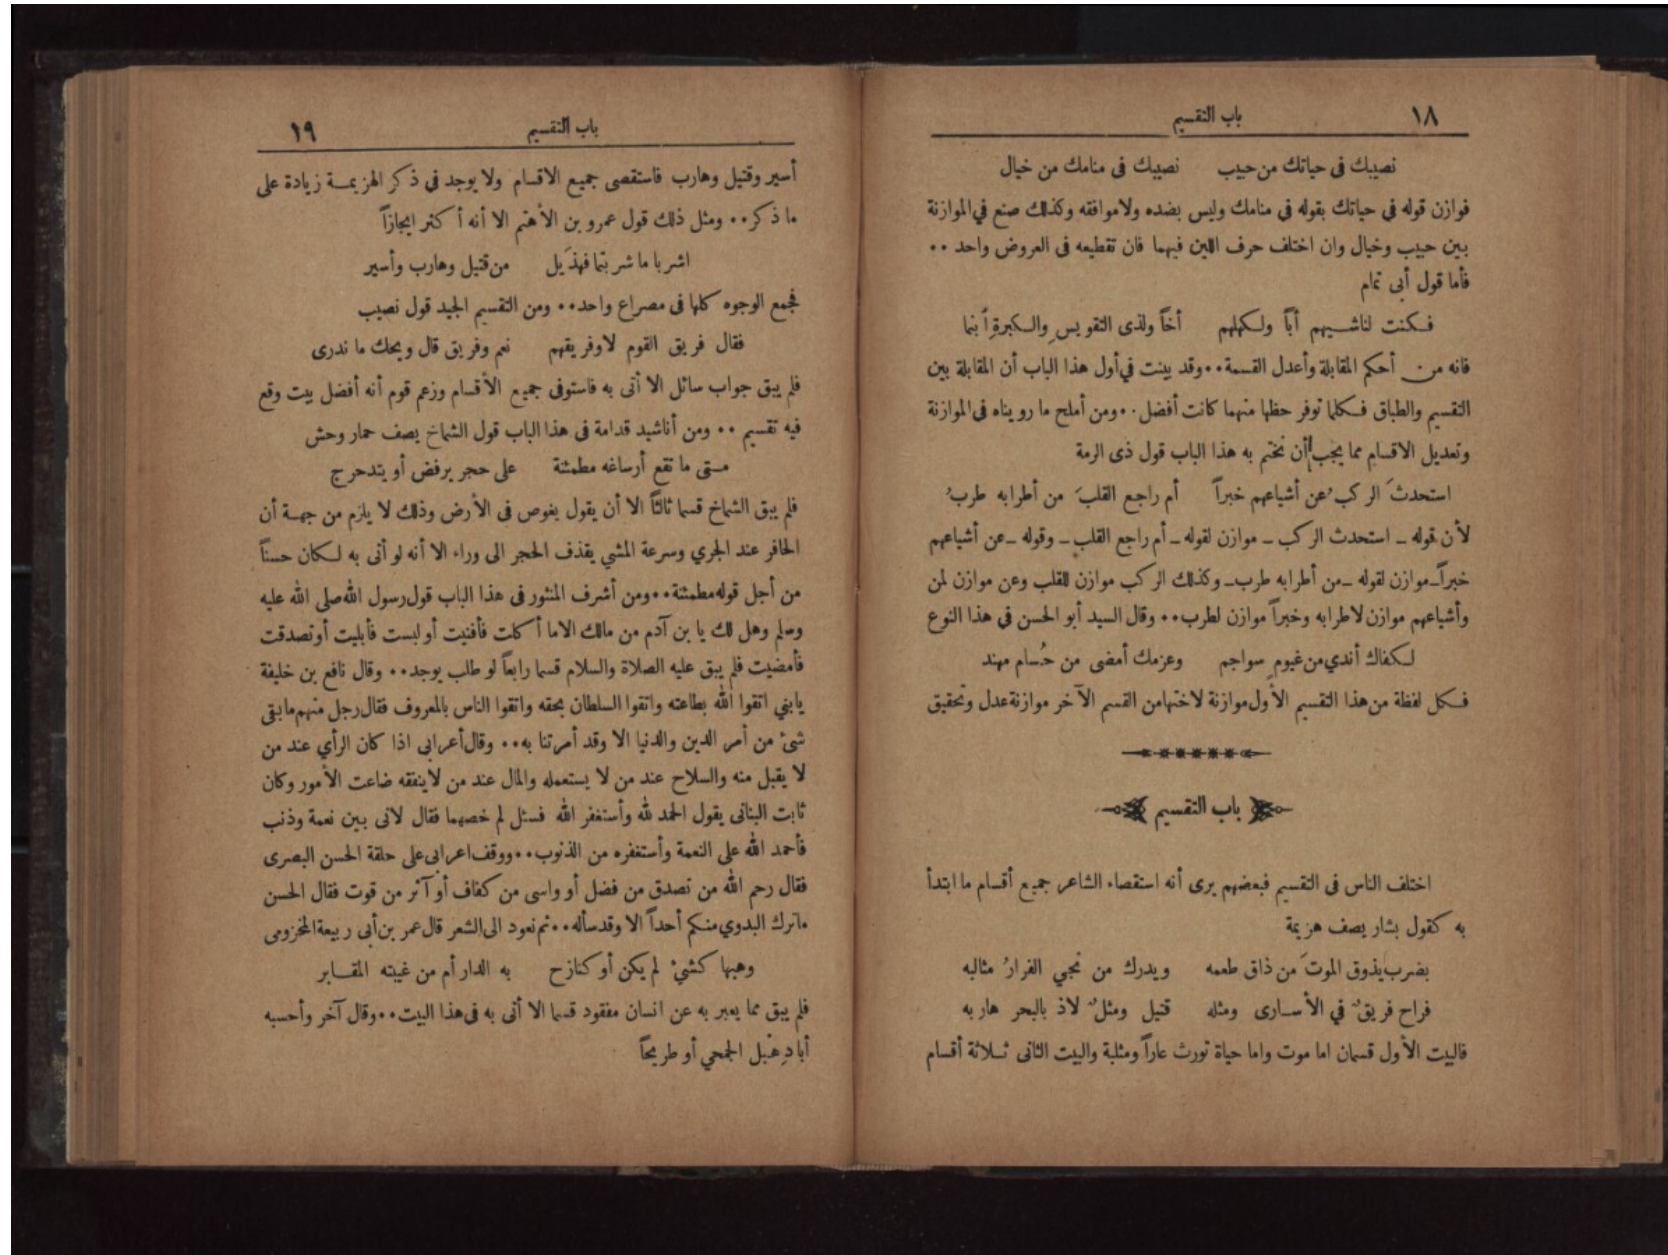 ١٨ باب التقسيم
نصيبك فى حياتك من حبيب نصيبك فى منامك من خيال
فوازن قوله في حياتك بقوله في منامك وليس بضده ولا موافقه وكذلك صنع في الموازنة
بين حبيب وخيال وان اختلف حرف اللين فيهما فان تقطيعه فى العروض واحد ٠٠
فأما قول أبى تمام
فكنت لناشيهم أباً ولكهلهم أخاً ولذى التقويسِ والكبرةِ اُبنما
فانه من أحكم المقابلة وأعدل القسمة ٠٠ وقد بينت في أول هذا الباب أن المقابلة بين
التقسيم والطباق فكلما توفر حظها منهما كانت أفضل ٠٠ ومن أملح ما رويناه فى الموازنة
وتعديل الاقسام مما يجب أن نختم به هذا الباب قول ذى الرمة
استحدثَ الركبُ عن أشياعهم خبراً أم راجع القلبَ من أطرابه طربُ
لأن قوله ـ استحدث الركب ـ موازن لقوله ـ أم راجع القلب ـ وقوله ـ عن أشياعهم
خبراً ـ موازن لقوله ـ من أطرابه طرب ـ وكذلك الركب موازن للقلب وعن موازن لمن
وأشياعهم موازن لاطرابه وخبراً موازن لطرب ٠٠ وقال السيد أبو الحسن في هذا النوع
لكفاك أندي من غيومٍ سواجم وعزمك أمضى من حُسام مهند
فكل لفظة من هذا التقسيم الأول موازنة لاختها من القسم الآخر موازنة عدل وتحقيق
باب التقسيم
اختلف الناس فى التقسيم فبعضهم يرى أنه استقصاء الشاعر جميع أقسام ما ابتدأ
به كقول بشار يصف هزيمة
بضرب يذوق الموتَ من ذاق طعمه ويدرك من نجي الفرارُ مثالبه
فراح فريقٌ في الأسارى ومثله قتيل ومثلٌ لاذ بالبحر هاربه
فالبيت الأول قسمان اما موت واما حياة تورث عاراً ومثلبة والبيت الثانى ثلاثة أقسام
باب التقسيم ١٩
أسير وقتيل وهارب فاستقصى جميع الاقسام ولا يوجد فى ذكر الهزيمة زيادة على
ما ذكر ٠٠ ومثل ذلك قول عمرو بن الأهتم الا أنه أكثر ايجازاً
اشربا ما شربتما فهذَيل من قتيل وهارب وأسير
فجمع الوجوه كلها فى مصراع واحد ٠٠ ومن التقسيم الجيد قول نصيب
فقال فريق القوم لا وفريقهم نعم وفريق قال ويحك ما ندرى
فلم يبق جواب سائل الا أتى به فاستوفى جميع الأقسام وزعم قوم أنه أفضل بيت وقع
فيه تقسيم ٠٠ ومن أناشيد قدامة فى هذا الباب قول الشماخ يصف حمار وحش
متى ما تقع أرساغه مطمئنة على حجر يرفض أو يتدحرج
فلم يبق الشماخ قسما ثالثاً الا أن يقول يغوص فى الأرض وذلك لا يلزم من جهة أن
الحافر عند الجري وسرعة المشي يقذف الحجر الى وراء الا أنه لو أتى به لكان حسناً
من أجل قوله مطمئنة ٠٠ ومن أشرف المنثور فى هذا الباب قول رسول الله صلى الله عليه
وسلم وهل لك يا بن آدم من مالك الا ما أكلت فأفنيت أو لبست فأبليت أو تصدقت
فأمضيت فلم يبق عليه الصلاة والسلام قسما رابعاً لو طلب يوجد ٠٠ وقال نافع بن خليفة
يابني اتقوا الله بطاعته واتقوا السلطان بحقه واتقوا الناس بالمعروف فقال رجل منهم ما بقى
شئ من أمر الدين والدنيا الا وقد أمرتنا به ٠٠ وقال أعرابى اذا كان الرأي عند من
لا يقبل منه والسلاح عند من لا يستعمله والمال عند من لا ينفقه ضاعت الأمور وكان
ثابت البنانى يقول الحمد لله وأستغفر الله فسئل لم خصهما فقال لانى بين نعمة وذنب
فأحمد الله على النعمة وأستغفره من الذنوب ٠٠ ووقف اعرابى على حلقة الحسن البصرى
فقال رحم الله من تصدق من فضل أو واسى من كفاف أو آثر من قوت فقال الحسن
ماترك البدوي منكم أحداً الا وقد سأله ٠٠ ثم نعود الى الشعر قال عمر بن أبى ربيعة المخزومى
وهبها كشئ لم يكن أو كنازح به الدار أم من غيبته المقابر
فلم يبق مما يعبر به عن انسان مفقود قسما الا أتى به فى هذا البيت ٠٠ وقال آخر وأحسبه
أبا دِهْبل الجمحي أو طريحاً